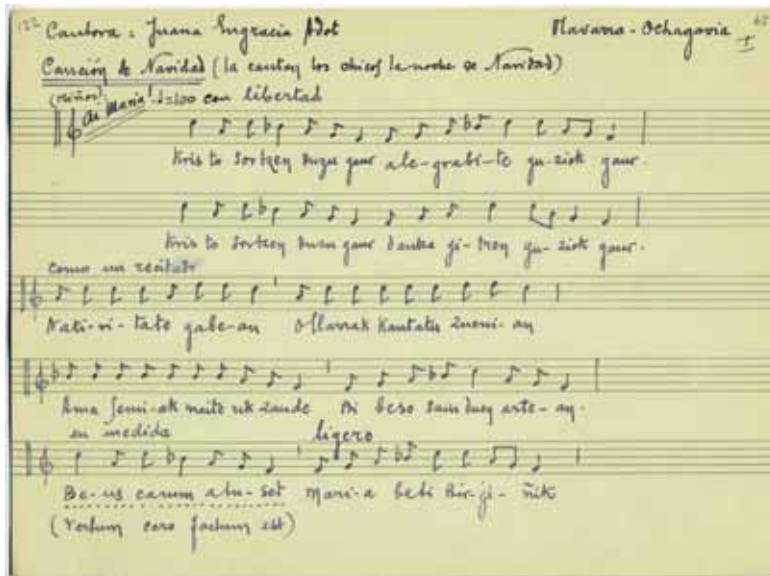 122 Cantora : Juana Engracia Adot Navarra - Ochagavia 65
I
Canción de Navidad (la cantan los chicos la noche de Navidad)
(niños)
Av. Maria! ♩=100 con libertad
Kristo sortzen duzu gaur ale-grabi-te gu-ziok gaur.
Kristo sortzen duzu gaur dantza gi-tzen gu-ziok gaur.
como un recitado
Nati-vi-tate gabe-an Ollarrak kantatu zueni-an
Ama Semi-ak maite rik zaude bi beso sain duen arte-an.
en medida ligero
Be-us carum abu-set Mari-a beti Bir-ji-ñik
(Verbum caro factum est)